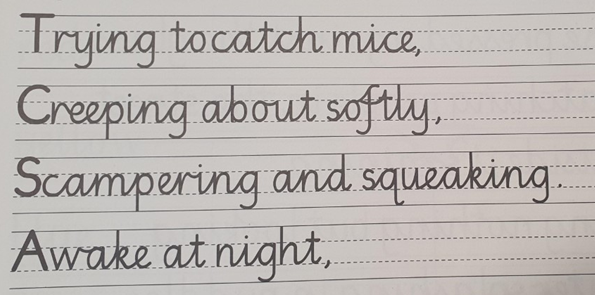 Trying to catch mice,
Creeping about softly,
Scampering and squeaking.
Awake at night,